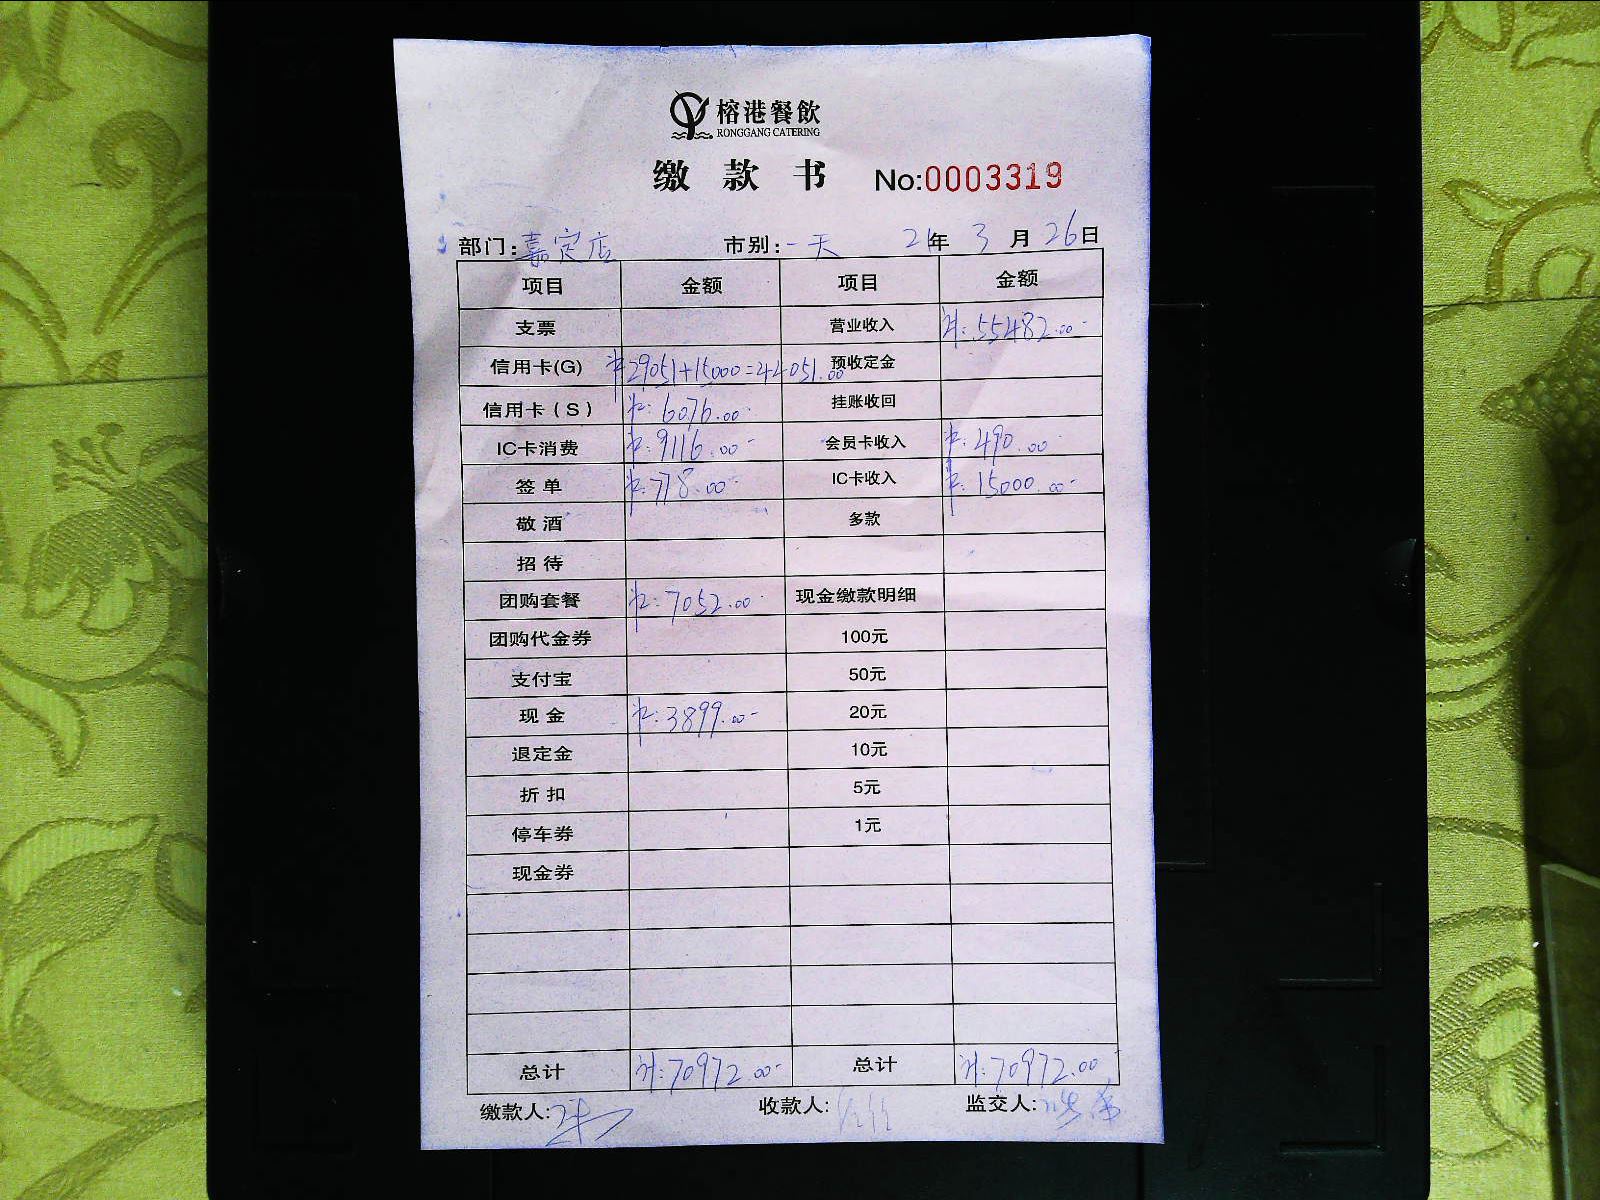 榕港餐飲
RONGGANG CATERING
缴款书 No:0003319
部门:嘉定店 市别:一天 21年 3月 26日
项目 金额 项目 金额
支票 营业收入 计:55482.00-
信用卡(G) ¥29051+15000=44051.00 预收定金
信用卡(S) ¥:6076.00- 挂账收回
IC卡消费 ¥:9116.00- 会员卡收入 ¥:490.00-
签单 ¥:778.00- IC卡收入 ¥:15000.00-
敬酒 多款
招待
团购套餐 ¥:7052.00- 现金缴款明细
团购代金券 100元
支付宝 50元
现金 ¥:3899.00- 20元
退定金 10元
折扣 5元
停车券 1元
现金券
总计 计:70972.00- 总计 计:70972.00
缴款人: 收款人: 监交人: